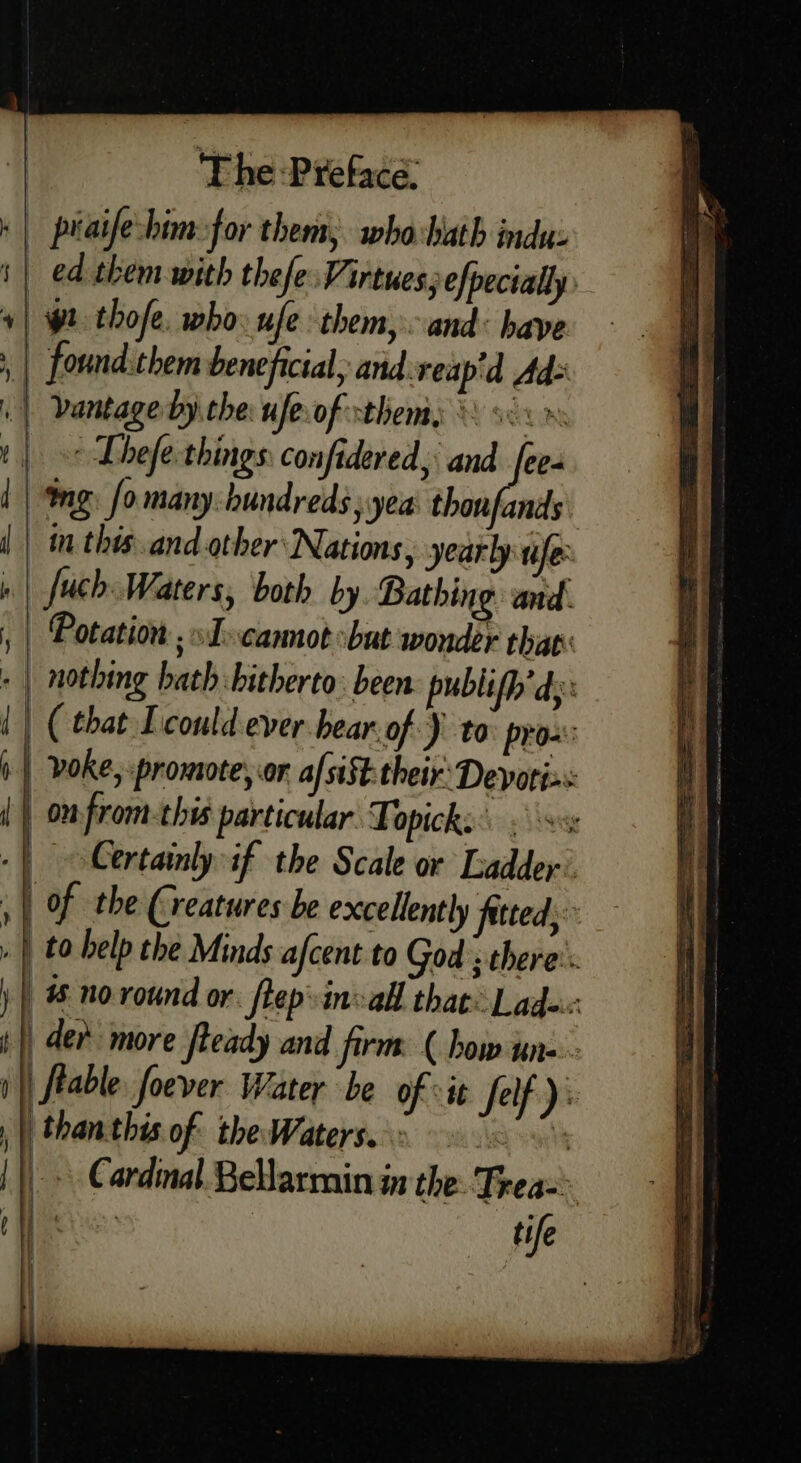 The Preface.
praiſe him for them, who hath indu-
ed them with theſe Virtues; eſpecially
in thoſe who uſe them, and have
found them beneficial, and reap'd Ad-
vantage by the uſe of them.
Theſe things conſidered, and ſee-
ing ſo many hundreds, yea thouſands
in this and other Nations, yearly uſe
ſuch Waters, both by Bathing and
Potation, I cannot but wonder that
nothing hath hitherto been publiſh'd,
(that I could ever hear of) to pro-
voke, promote, or aſsiſt their Devoti-
on from this particular Topick.
Certainly if the Scale or Ladder
of the Creatures be excellently fitted,
to help the Minds aſcent to God; there
is no round or ſtep in all that Lad-
der more ſteady and firm (how un-
ſtable ſoever Water be of it ſelf)
than this of the Waters.
Cardinal Bellarmin in the Trea-
tiſe